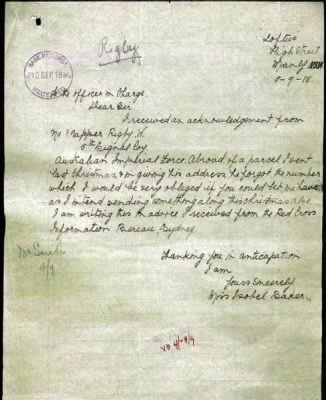 Rigby
"Loftus"
High Street
Manly NSW
-9-18.
BASE RECORDS
10 SEP 1918
The Officer in Charge,
Dear Sir
I received an acknowledgement from
No Sapper Rigby H.
5th Signal Coy
Australian Imperial Force Abroad of a parcel I sent
last Christmas, & on giving his address he forgot the number
which I would be very obliged if you could let me have,
as I intend sending something along this Christmas also
I am writing this on advice I received from the Red Cross
Information Bureau, Sydney
Thanking you in anticipation
I am
Yours Sincerely
Isobel Baker